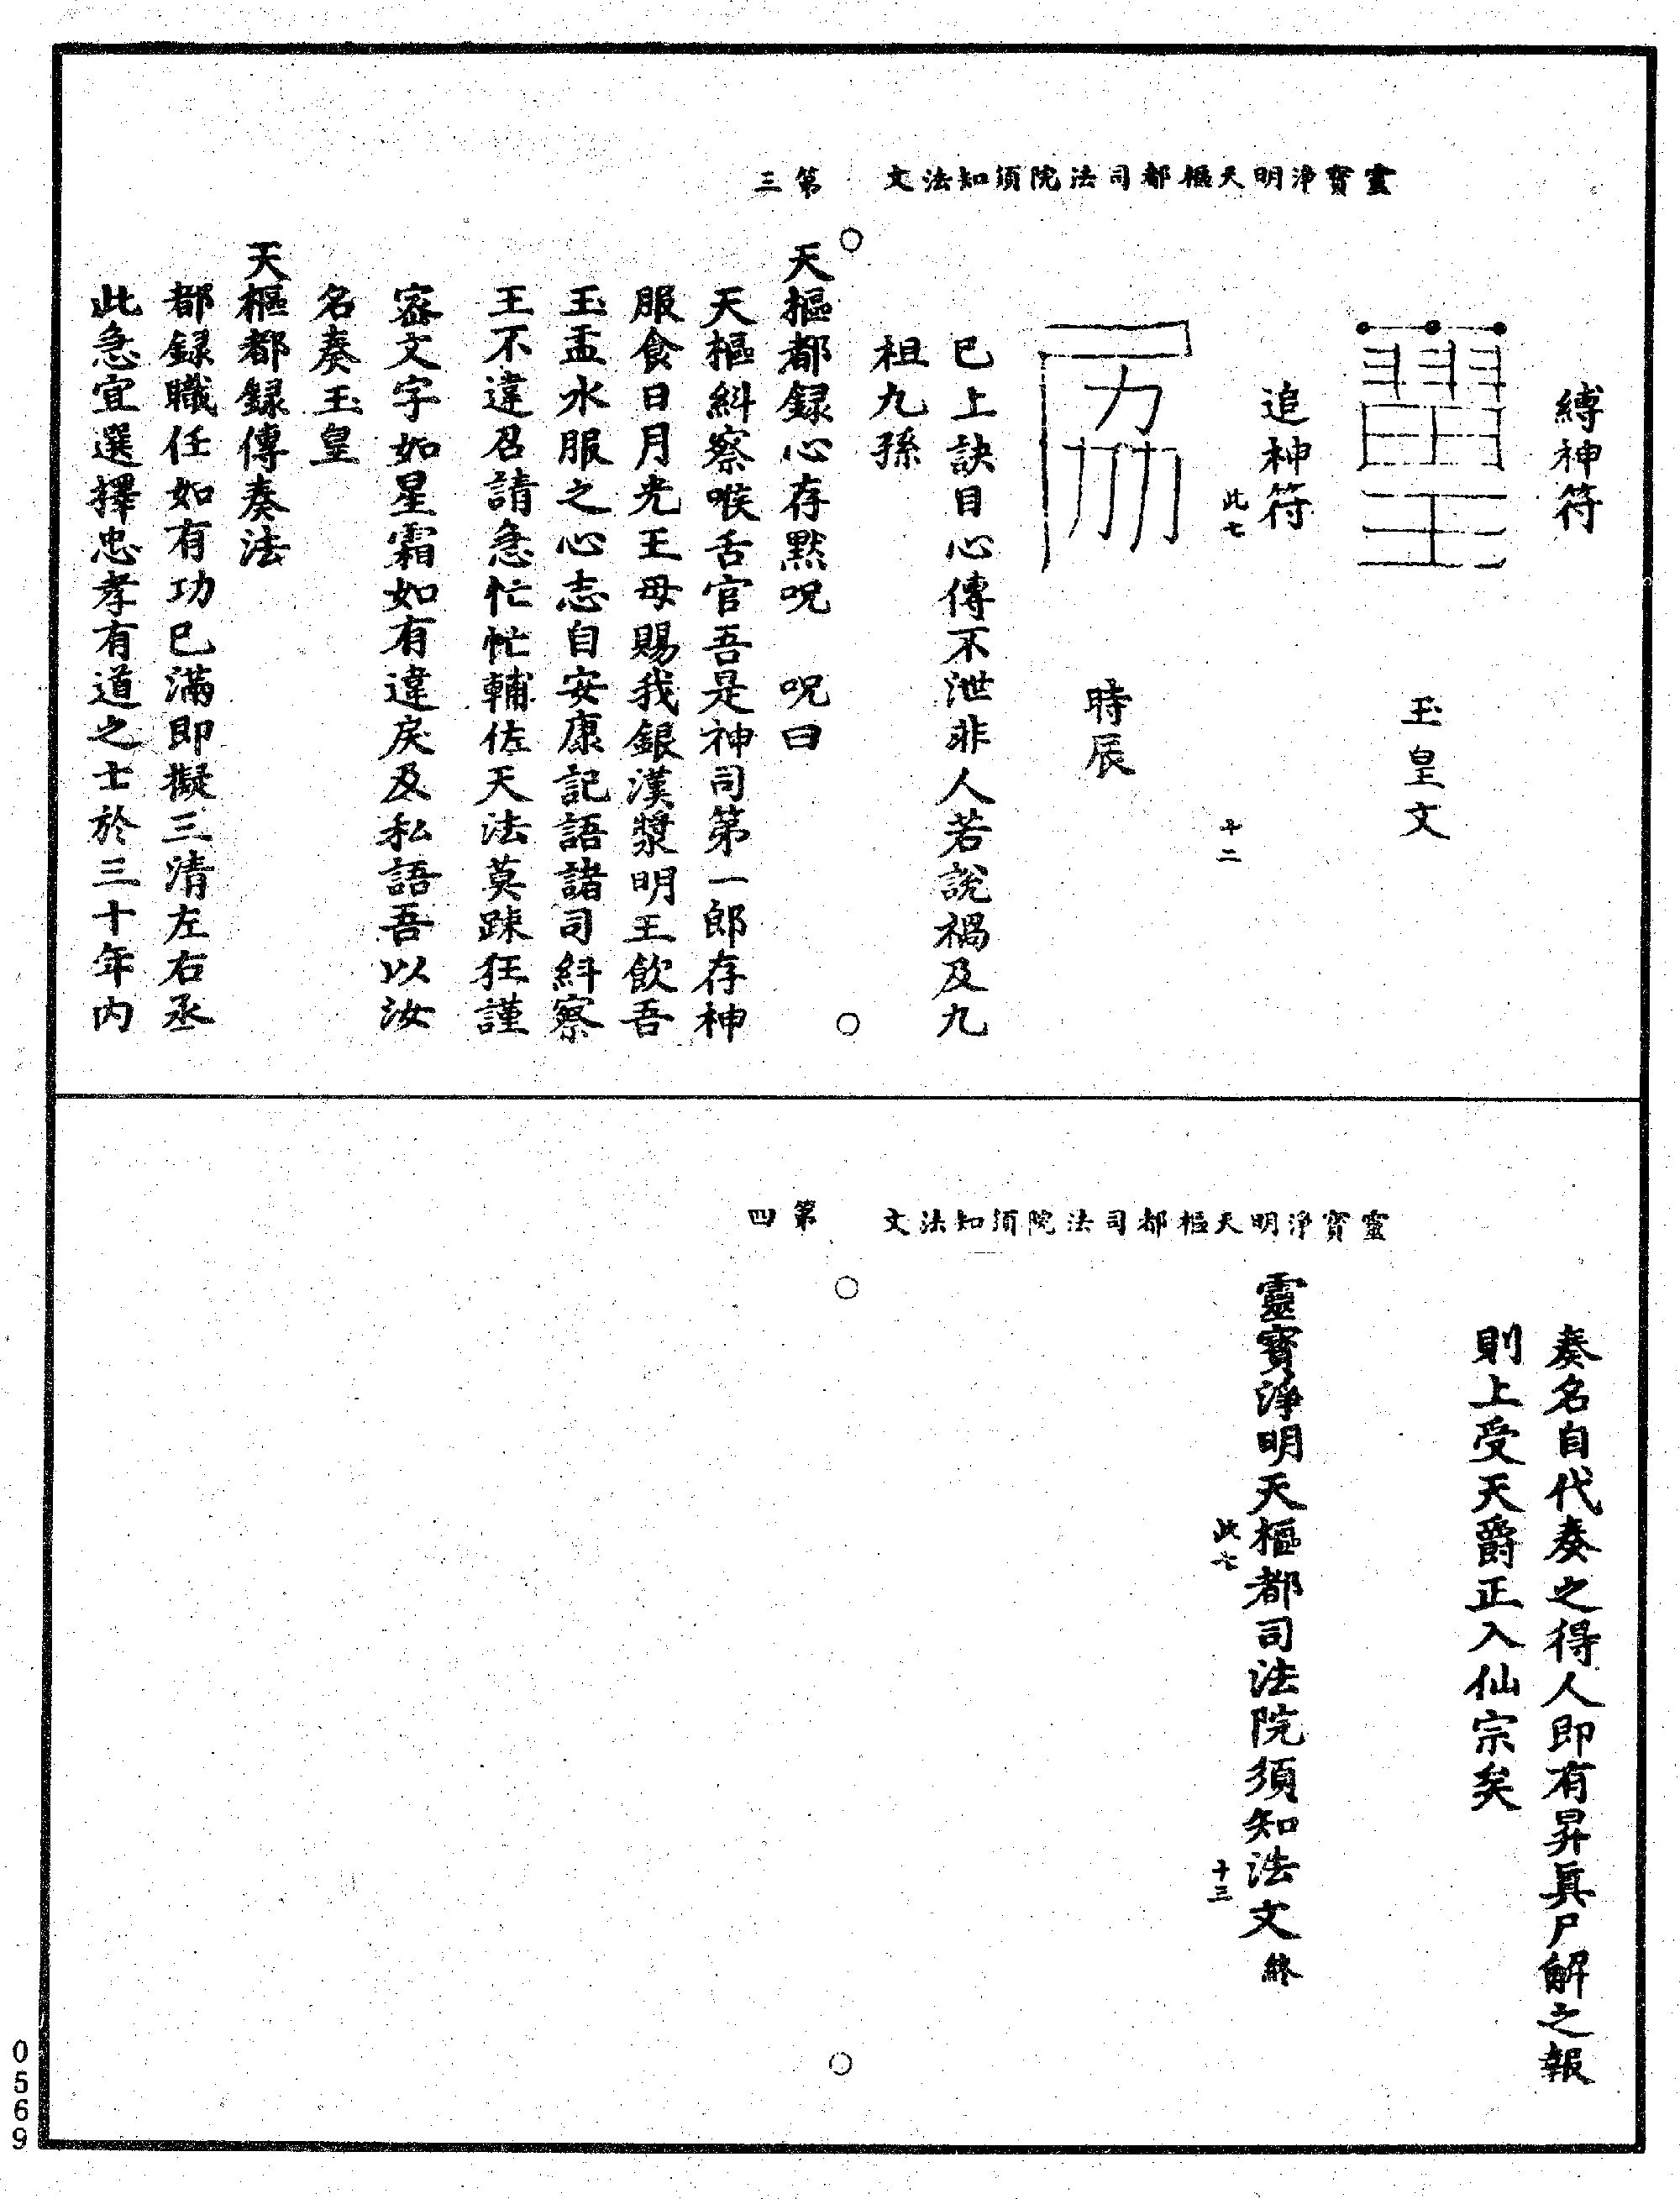 靈寶淨明天樞都司法院須知法文　第三
縛神符
玉皇文
追神符
此七
十二
時辰
已上訣目心傳不泄非人若說禍及九
祖九孫
天樞都録心存默呪　呪曰
天樞糾察喉舌官吾是神司第一郎存神
服食日月光王母賜我銀漢漿明王飲吾
玉盂水服之心志自安康記語諸司糾察
王不違召請急忙忙輔佐天法莫踈狂謹
密文字如星霜如有違戾及私語吾以汝
名奏玉皇
天樞都録傳奏法
都録職任如有功已滿即擬三清左右丞
此急宜選擇忠孝有道之士於三十年内
靈寶淨明天樞都司法院須知法文　第四
奏名自代奏之得人即有昇眞尸解之報
則上受天爵正入仙宗矣
靈寶淨明天樞都司法院須知法文終
此七
十三
0569